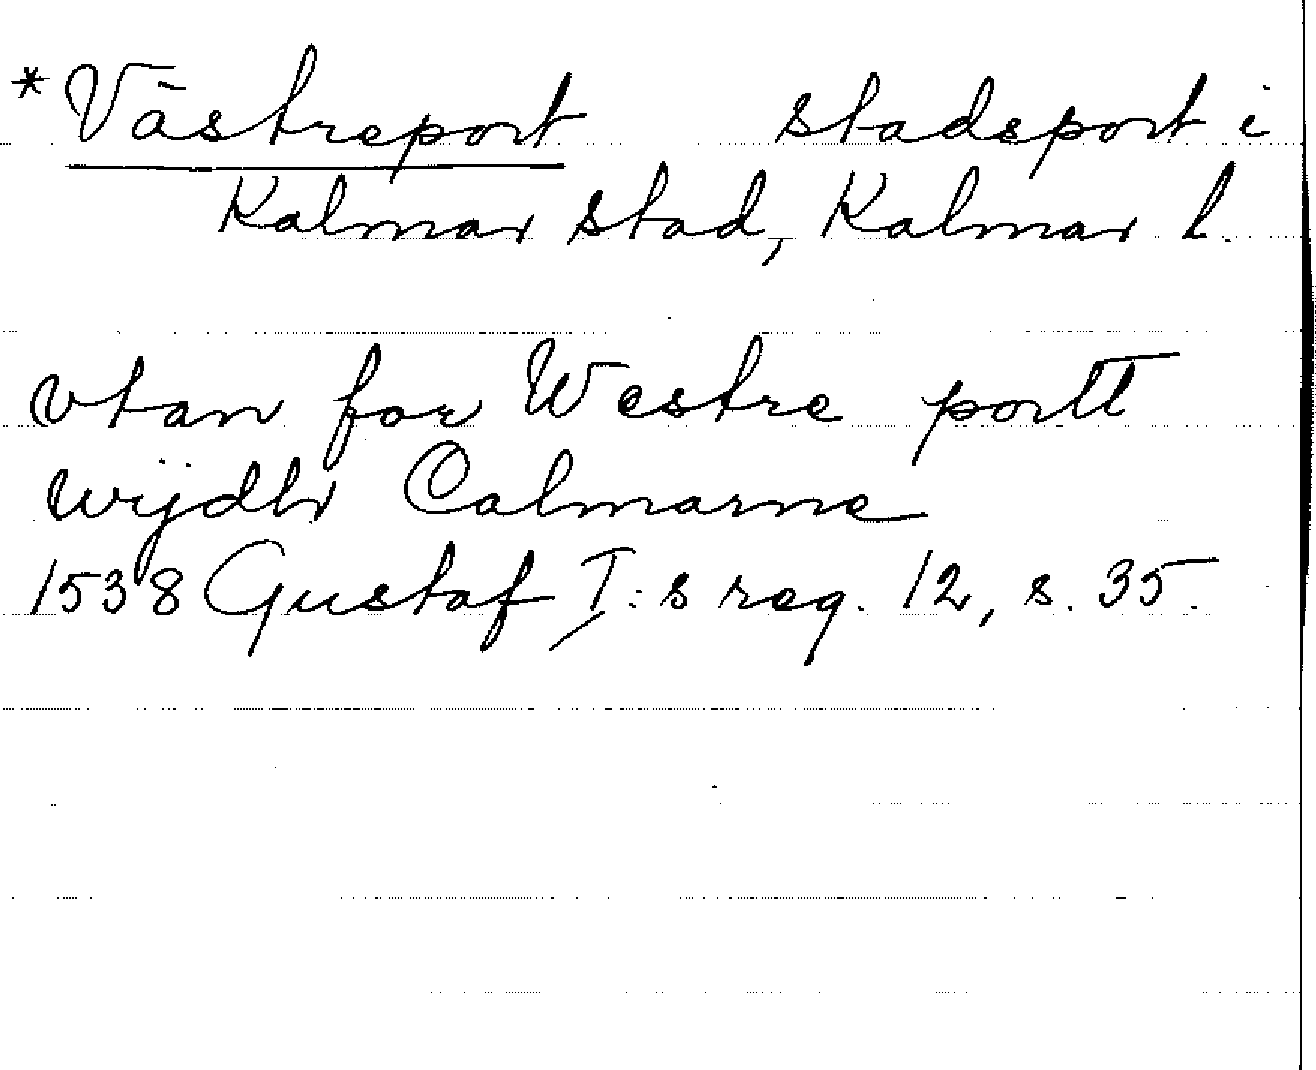 *Västreport stadsport i
Kalmar stad, Kalmar l.
vtan for Westre portt
wijdhr Calmarne
1538 Gustaf I:s reg. 12, s. 35.